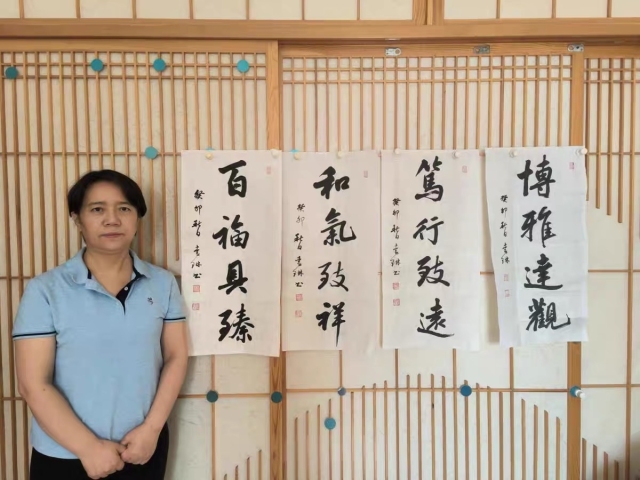 百福具臻
癸卯
和氣致祥
癸卯
篤行致遠
癸卯
博雅達觀
癸卯